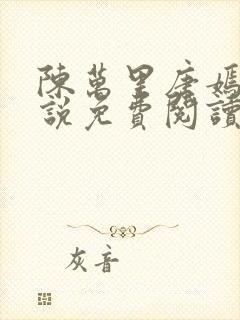 陳萬里唐嫣
說免費閱讀
灰音